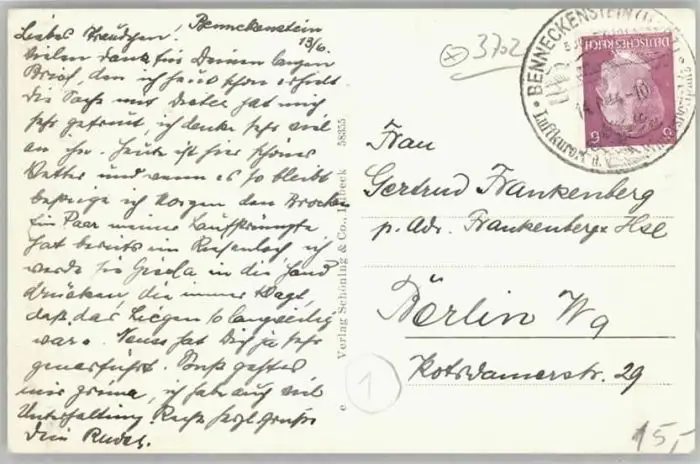 Liebes Trautchen! Benneckenstein
13/6.
Vielen Dank für Deinen langen
Brief, den ich heute schon erhielt
Die Sache mit Dieter hat mich
sehr gefreut, ich denke sehr viel
an ihn. Heute ist hier schönes
Wetter und wenn es so bleibt
besteige ich Morgen den Brocken
Ein Paar meiner
hat bereits ein Riesenloch ich
werde sie Gisela in die Hand
drücken, die immer klagt,
daß das Liegen so langweilig
war. hat Dich ja sehr
Sonst geht es
mir prima, ich habe auch viel
Unterhaltung. Recht herzl. Grüße
Dein Rudi.
Verlag Schöning & Co., Lübeck 58355
3702
BENNECKENSTEIN
DEUTSCHES REICH
6 6
Frau
Gertrud Frankenberg
p. Adr. Frankenberg Hse
Berlin W9
Potsdamerstr. 29
1
15,-